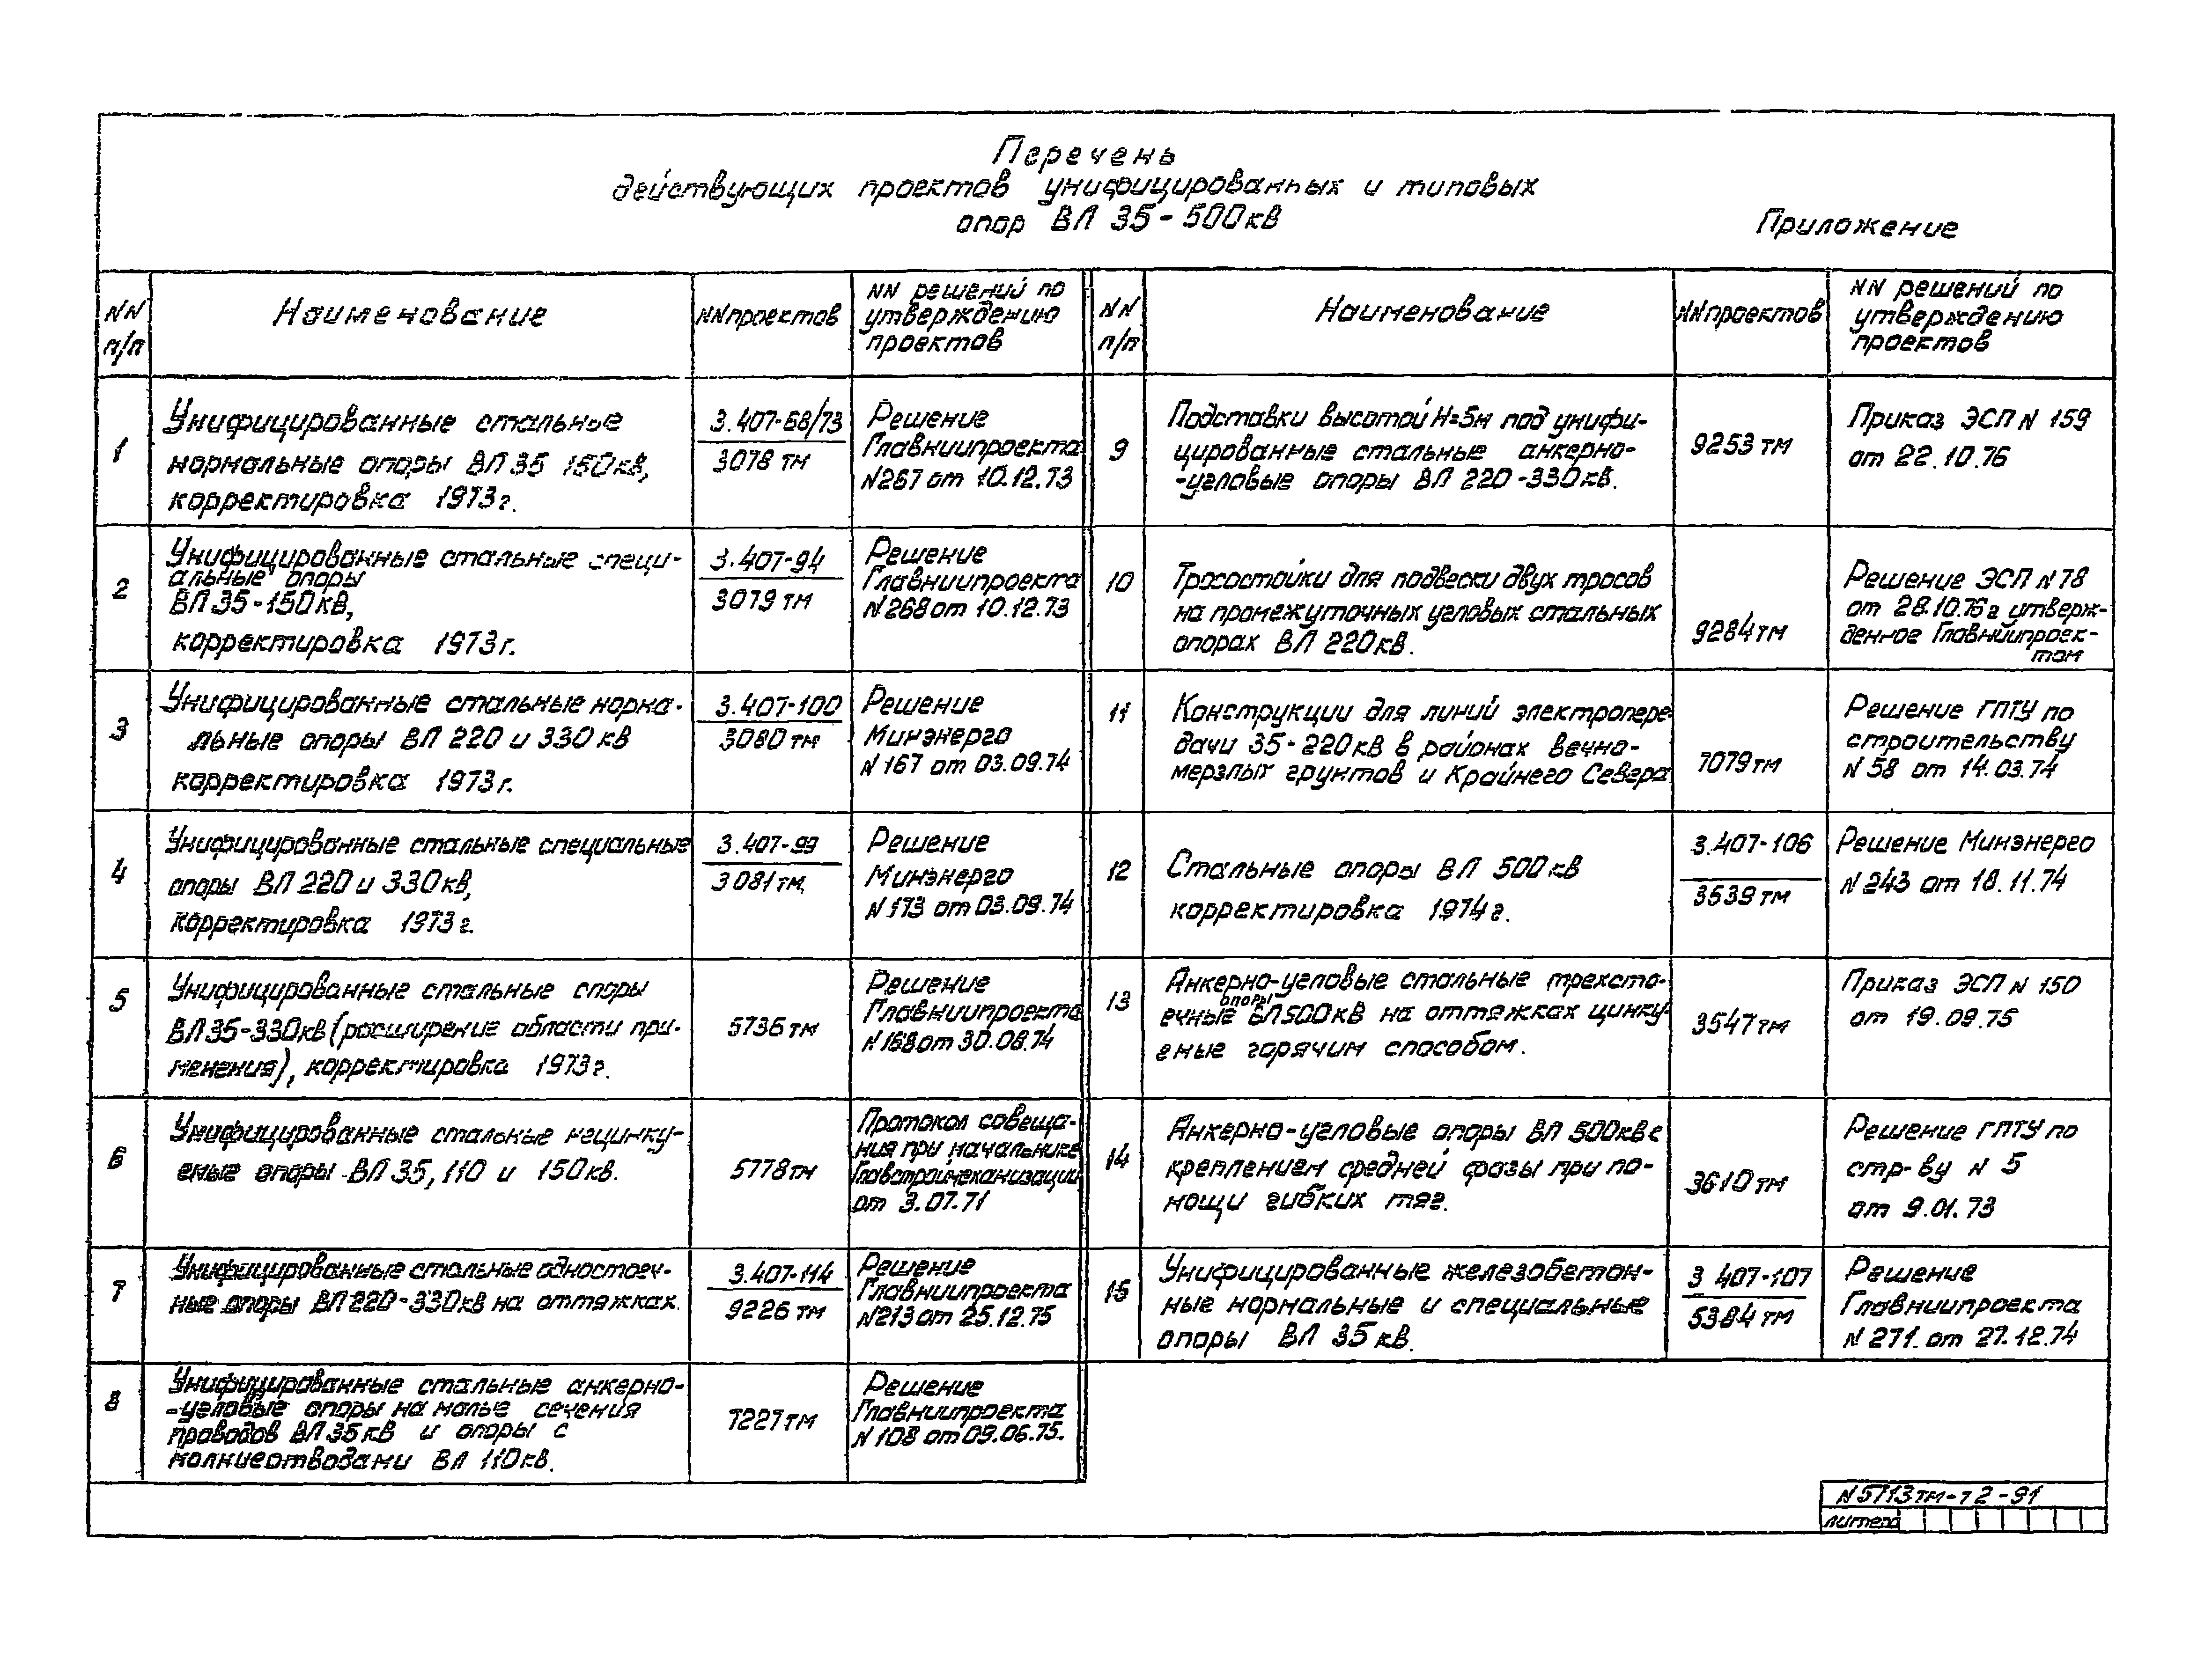 Перечень
действующих проектов унифицированных и типовых
опор ВЛ 35-500кВ
Приложение
NN
п/п
Наименование
NN проектов
NN решений по
утверждению
проектов
1
Унифицированные стальные
нормальные опоры ВЛ 35 150кВ,
корректировка 1973г.
3.407-68/73
3078 тм
Решение
Главниипроекта
N267 от 10.12.73
2
Унифицированные стальные специ-
альные опоры
ВЛ 35-150кВ,
корректировка 1973г.
3.407-94
3079 тм
Решение
Главниипроекта
N268 от 10.12.73
3
Унифицированные стальные норма-
льные опоры ВЛ 220 и 330 кВ
корректировка 1973г.
3.407-100
3080 тм
Решение
Минэнерго
N 167 от 03.09.74
4
Унифицированные стальные специальные
опоры ВЛ 220 и 330кВ,
корректировка 1973г.
3.407-99
3081 тм
Решение
Минэнерго
N 173 от 03.09.74
5
Унифицированные стальные опоры
ВЛ 35-330кВ (расширение области при-
менения), корректировка 1973г.
5736 тм
Решение
Главниипроекта
N168 от 30.08.74
6
Унифицированные стальные нецинку-
емые опоры ВЛ 35, 110 и 150кВ.
5778 тм
Протокол совеща-
ния при начальнике
Главстроймеханизации
от 3.07.71
7
Унифицированные стальные одностоеч-
ные опоры ВЛ 220-330кВ на оттяжках.
3.407-114
9226 тм
Решение
Главниипроекта
N213 от 25.12.75
8
Унифицированные стальные анкерно-
-угловые опоры на малые сечения
проводов ВЛ 35кВ и опоры с
молниеотводами ВЛ 110кВ.
7227 тм
Решение
Главниипроекта
N 108 от 09.06.75.
NN
п/п
Наименование
NN проектов
NN решений по
утверждению
проектов
9
Подставки высотой Н=5м под унифи-
цированные стальные анкерно-
-угловые опоры ВЛ 220-330кВ.
9253 тм
Приказ ЭСП N 159
от 22.10.76
10
Тросостойки для подвески двух тросов
на промежуточных угловых стальных
опорах ВЛ 220кВ.
9284 тм
Решение ЭСП N 78
от 28.10.76г утверж-
денное Главниипроек-
том
11
Конструкции для линий электропере-
дачи 35-220кВ в районах вечно-
мерзлых грунтов и Крайнего Севера
7079 тм
Решение ГПТУ по
строительству
N 58 от 14.03.74
12
Стальные опоры ВЛ 500кВ
корректировка 1974г.
3.407-106
3539 тм
Решение Минэнерго
N 243 от 18.11.74
13
Анкерно-угловые стальные трехсто-
опоры
ечные ВЛ500кВ на оттяжках цинку-
емые горячим способом.
3547 тм
Приказ ЭСП N 150
от 19.09.75
14
Анкерно-угловые опоры ВЛ 500кВ с
креплением средней фазы при по-
мощи гибких тяг.
3610 тм
Решение ГПТУ по
стр-ву N 5
от 9.01.73
15
Унифицированные железобетон-
ные нормальные и специальные
опоры ВЛ 35 кВ.
3 407-107
5384 тм
Решение
Главниипроекта
N 271. от 27.12.74
N5713тм-т2-91
литера